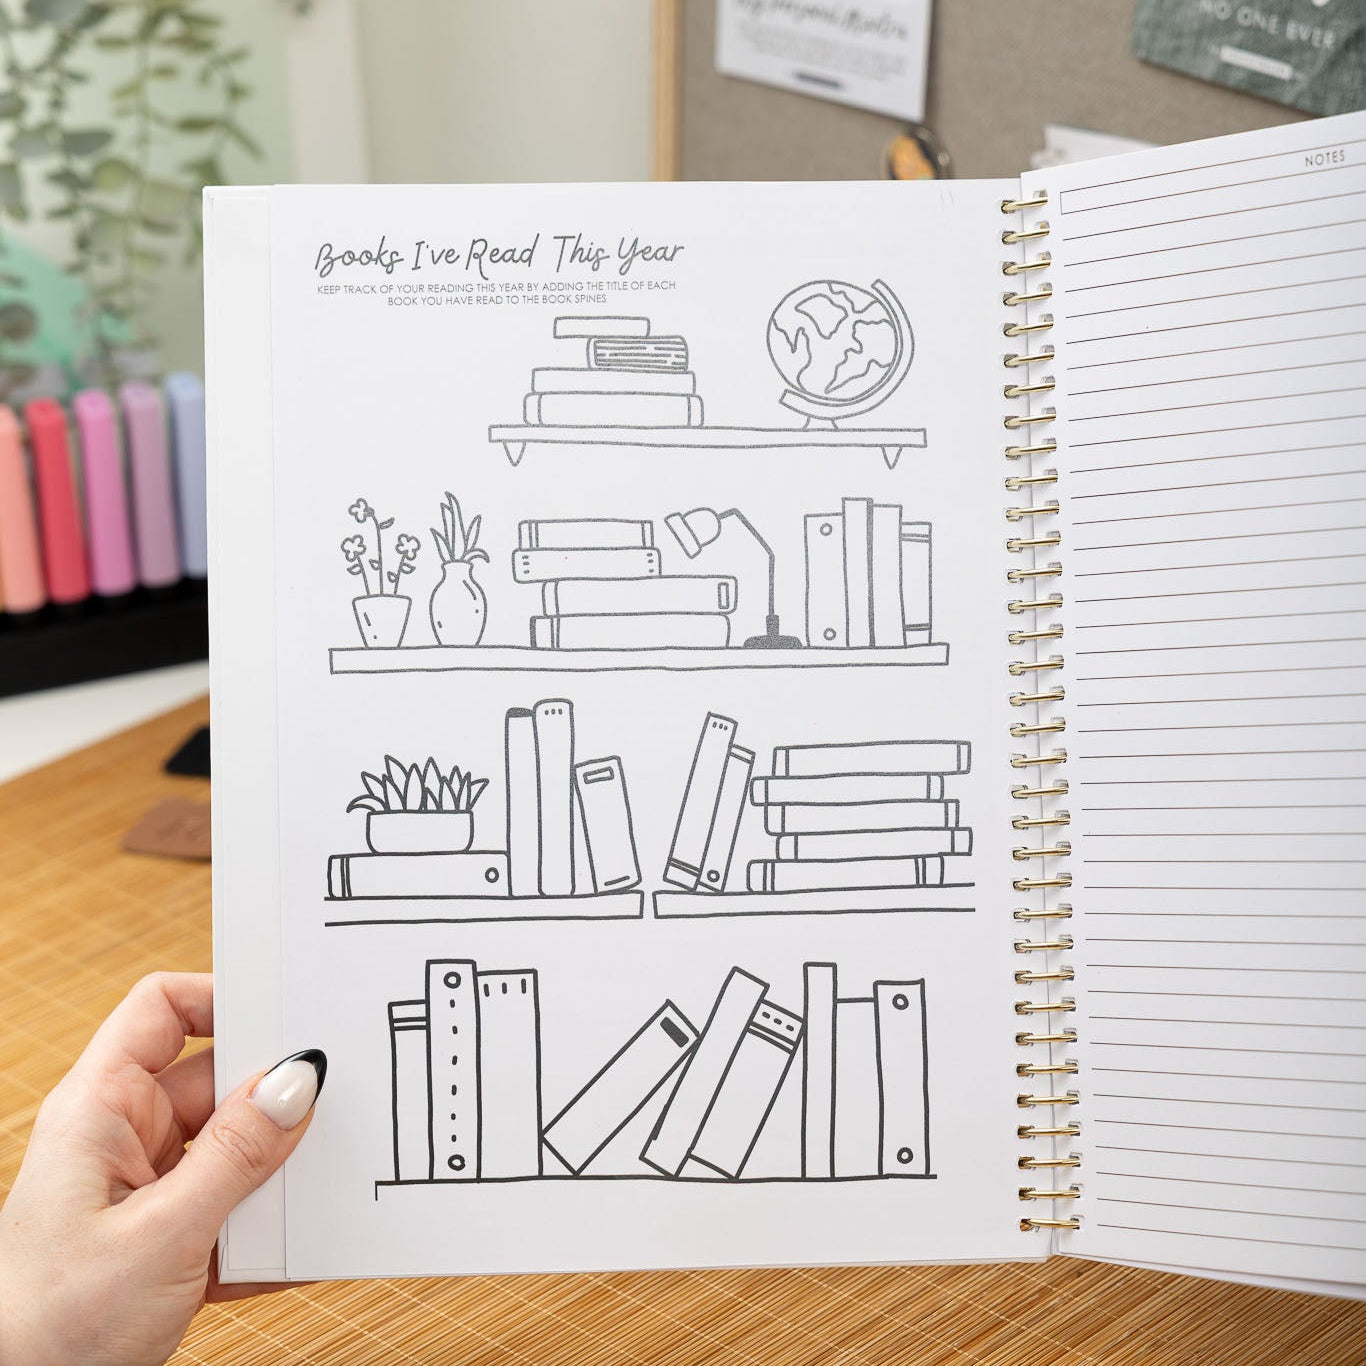 NO ONE EVER
NOTES
Books I've Read This Year
KEEP TRACK OF YOUR READING THIS YEAR BY ADDING THE TITLE OF EACH
BOOK YOU HAVE READ TO THE BOOK SPINES